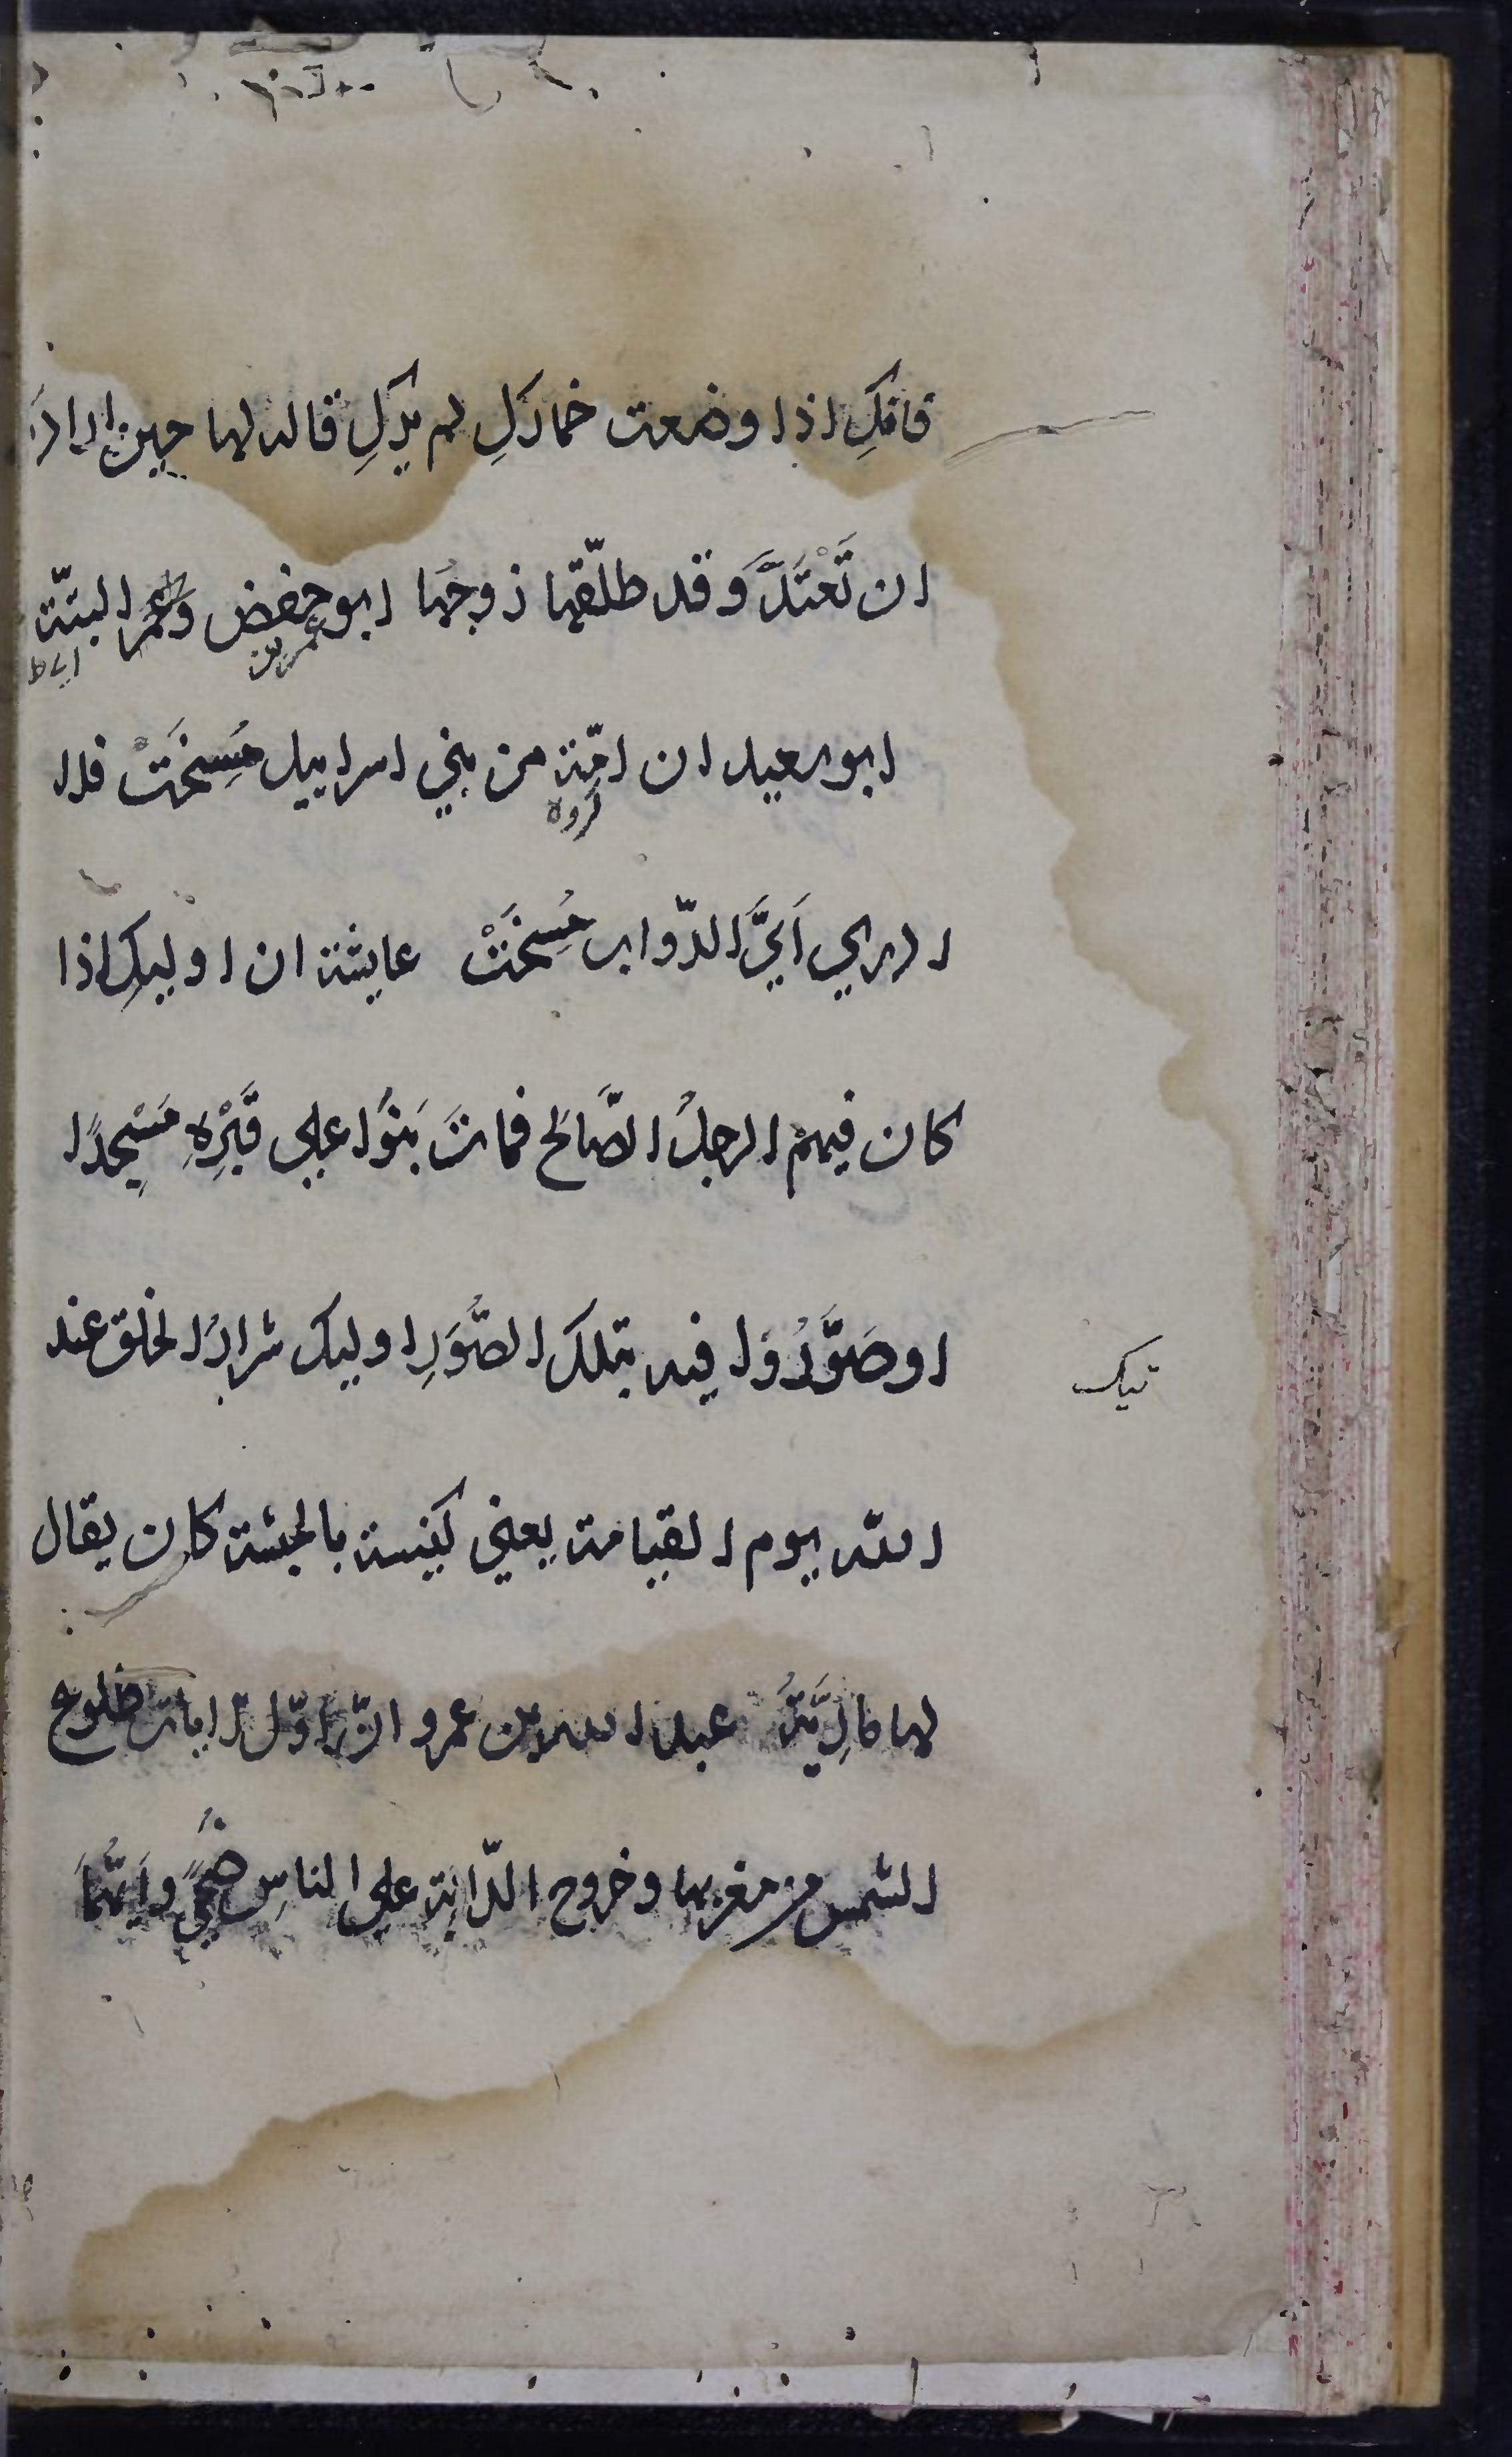 فانكِ اذا وضعت خماركِ لم يركِ قاله لها حين ارادَ
ان تَعْتَدَّ وَقد طلّقها زوجها ابو حفص وَ البتّة
عمر بن
ابو سعيد ان امّة من بني اسراييل مُسِخَتْ فلا
كروه
ادري اَيَّ الدّواب مُسِخَتْ عايشة ان اوليكِ اذا
كان فيهم الرجلُ الصَّالح فماتَ بَنَوْا علي قَبْرِهِ مَسْجِدًا
اوصَوَّرُوْا فيه تلكَ الصُّوَرِ اوليك شرارُ الخلق عند
تيك
الله يوم القيامة يعني كنيسة بالحبشة كان يقال
لها مارِيَّةُ عبد الله بن عمرو انّ اوّل الايات طلوع
الشمس من مغربها وخروج الدّابّة علي الناسِ ضُحًي واَيُّهُمَا